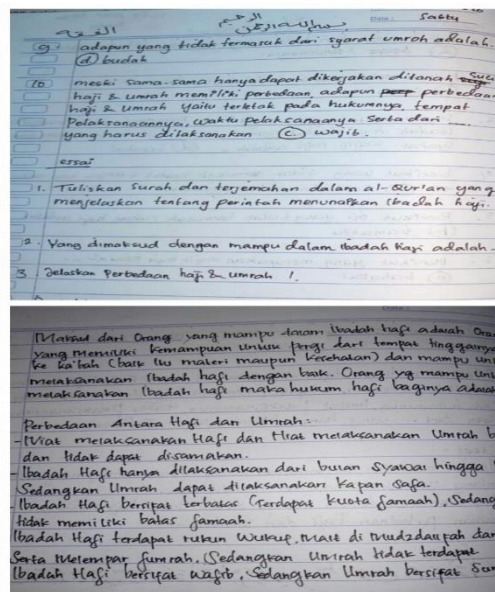 الرحيم
بسم الله الرحمن
Sabtu
9. adapun yang tidak termasuk dari syarat umroh adalah.
(d) budak
10 meski sama-sama hanya dapat dikerjakan ditanah suci
haji & umrah memiliki perbedaan, adapun perbedaan
haji & umrah yaitu terletak pada hukumnya, tempat
Pelaksanaannya, waktu pelaksanaanya serta dari .....
yang harus dilaksanakan (C.) wajib.
essai
1. Tuliskan Surah dan terjemahan dalam al-Qur'an yang
menjelaskan tentang perintah menunaikan Ibadah haji.
2. Yang dimaksud dengan mampu dalam Ibadah Haji adalah.
3 Jelaskan Perbedaan haji & umrah !.
Maksud dari Orang yang mampu dalam ibadah haji adalah Ora
yang memiliki kemampuan untuk pergi dari tempat tinggalnya
ke ka'bah (baik itu materi maupun kesehatan) dan mampu un
melaksanakan Ibadah haji dengan baik. Orang yg mampu un
melaksanakan Ibadah haji maka hukum haji baginya adala
Perbedaan Antara Haji dan Umrah:
-Niat melaksanakan Haji dan Niat melaksanakan Umrah b
dan tidak dapat disamakan.
-Ibadah Haji hanya dilaksanakan dari bulan Syawal hingga
Sedangkan Umrah dapat dilaksanakan kapan saja.
-Ibadah Haji bersifat terbatas (Terdapat kuota Jamaah), Sedang
tidak memiliki batas Jamaah.
Ibadah Haji terdapat rukun Wukuf, Mabit di Mudzdalifah dan
Serta Melempar Jumrah, Sedangkan Umrah tidak terdapat
Ibadah Haji bersifat Wajib, Sedangkan Umrah bersifat Sun